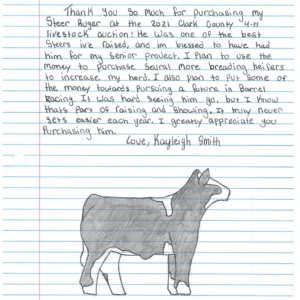 Thank you so much for purchasing my
Steer Ruger at the 2021 Clark County 4-H
livestock auction! He was one of the best
Steers iv'e raised, and im blessed to have had
him for my senior project. I plan to use the
money to purchase several more breeding heifers
to increase my herd. I also plan to put some of
the money towards pursuing a future in Barrel
Racing. It was hard seeing him go, but I know
thats part of raising and showing. It truly never
gets easier each year. I greatly appreciate you
Purchasing him.
Love, Kayleigh Smith